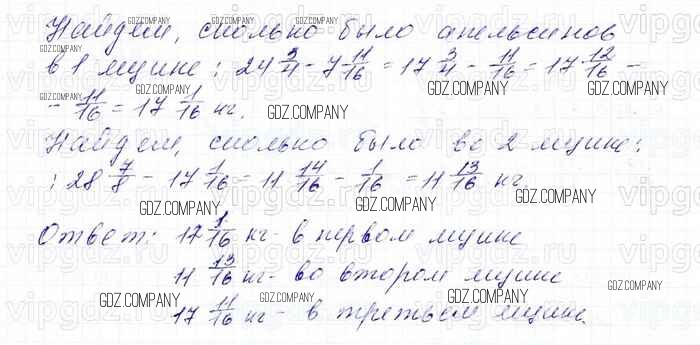 Найдем, сколько было апельсинов
в 1 ящике: 24 3/4 - 7 11/16 = 17 3/4 - 11/16 = 17 12/16 -
- 11/16 = 17 1/16 кг.
Найдем, сколько было во 2 ящике:
: 28 7/8 - 17 1/16 = 11 14/16 - 1/16 = 11 13/16 кг
Ответ: 17 1/16 кг - в первом ящике
11 13/16 кг - во втором ящике
17 11/16 кг - в третьем ящике.
GDZ.COMPANY
vipgdz.com